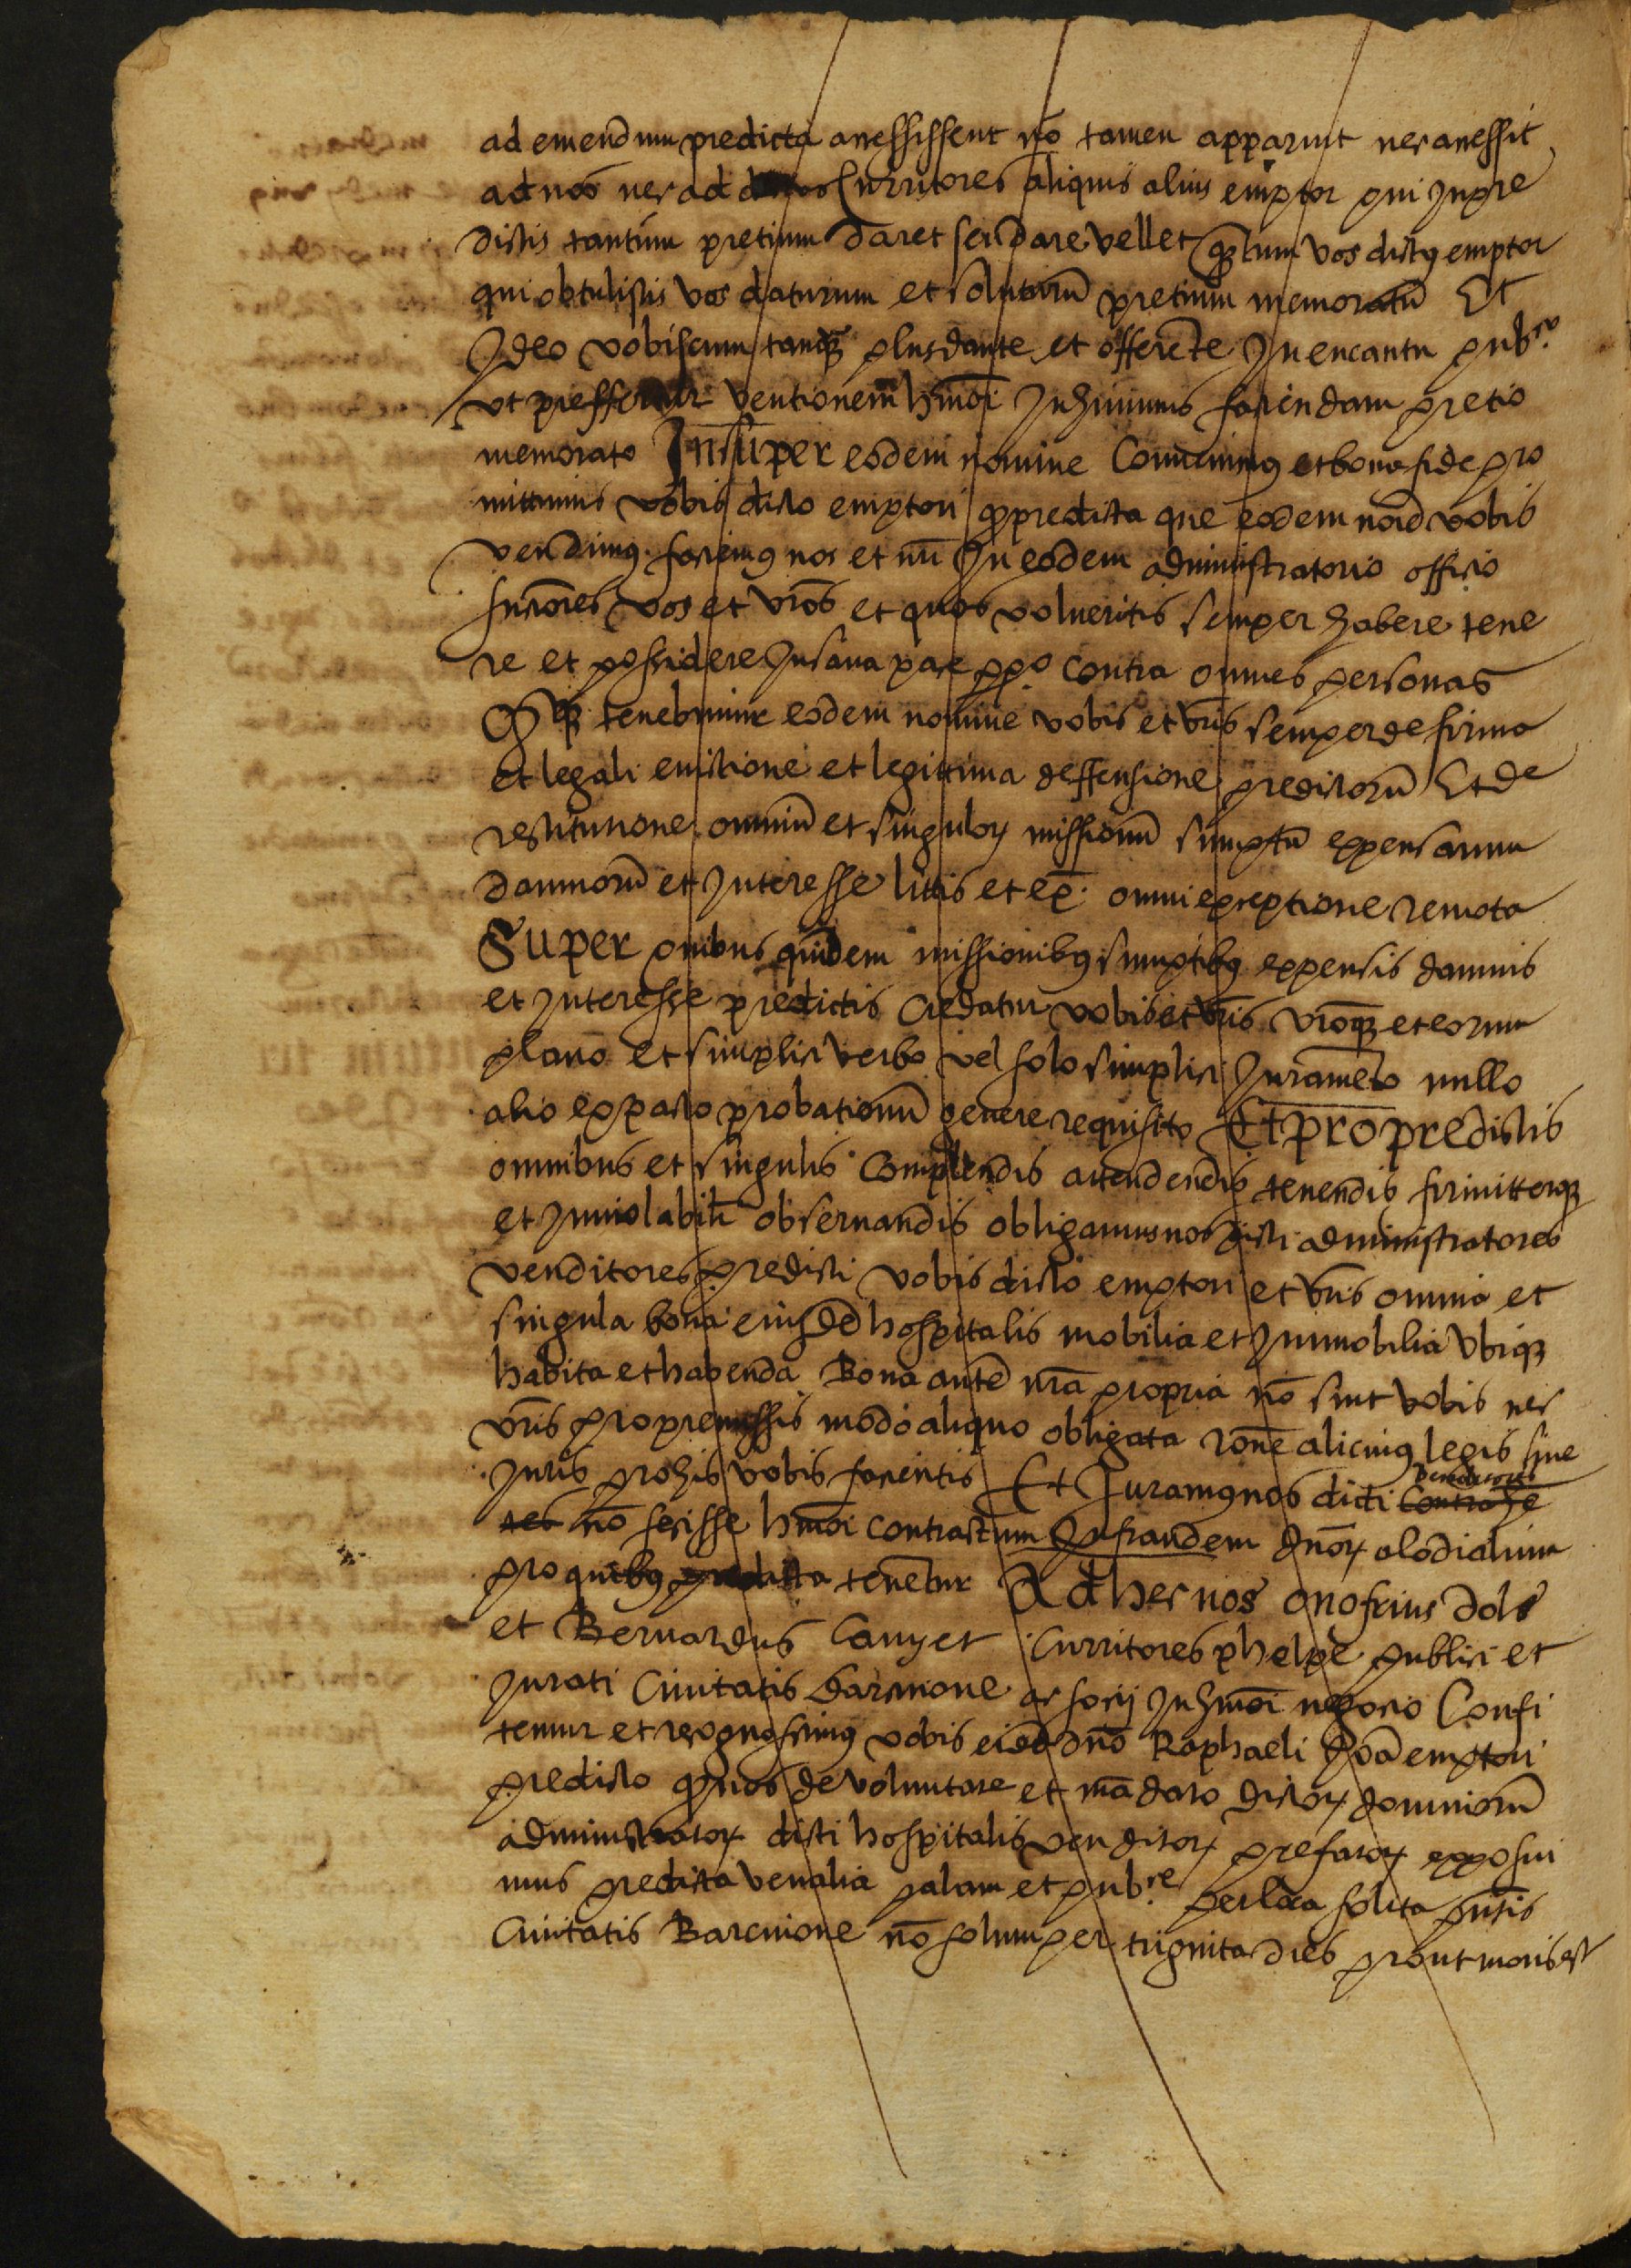 ad emendum predicta accessissent nō tamen apparuit nec accessit
ad nos nec ad dictos Curritores aliquis alius emptor qui in pre
dictis tantum pretium daret seu dare vellet quātum vos dictus emptor
qui obtulistis vos daturum et soluturū pretium memoratū Et
Ideo vobiscum tanqȝ plus dante et offerēte In encantu pubᶜᵒ
ut preffertur ventionem hmōi Inhivimus faciendam pretio
memorato Insuper eodem nomine Convenimus et bona fide pro
mittimus vobis dicto emptori q̄ predicta que eodem nōie vobis
vendimus faciemus nos et nr̄i In eodem administratorio officio
succōres vos et vrōs et quos volueritis semper habere tene
re et possidere In sana pace ppᵒ contra omnes personas
Qȝqȝ tenebimur eodem nomine vobis et vrīs semper de firma
et legali evictione et legittima deffensione predictorū Et de
restitutione omniū et singuloꝝ missionū sumptū expensarum
damnorū et Interesse littis et ex̄ omni exceptione remota
Super quibus quidem missionibus sumptibus expensis damnis
et Interesse predictis credatur vobis et vrīs vrōqȝ et eorum
plano et simplici verbo vel solo simplici Iuramēto nullo
alio expacto probationū genere requisito Et pro predictis
omnibus et singulis complendis attendendis tenendis firmitterqȝ
et Inviolabilr̄ observandis obligamus nos dicti administratores
venditores predicti vobis dicto emptori et vrīs omnia et
singula bona eiusdē hospitalis mobilia et Immobilia Ubiqȝ
habita et habenda Bona autē nrā propria nō sint vobis nec
vrīs pro premissis modo aliquo obligata rōne alicuius legis sive
Iuris pro his vobis facientis Et Iuramus nos dicti Contrahe
venditores
tes nō fecisse hmōi contractum In fraudem dnōꝝ alodialium
pro quibus predicta tenētur Ad hec nos onofrius dols
et Bernardus Canyet Curritores phelpe publici et
Iurati Civitatis Barcinone ac socij In hmōi negocio Confi
temur et recognoscimus vobis eidē dnō Raphaeli Joā emptori
predicto q̄ nos de voluntate et mādato dictoꝝ dominorū
administratoꝝ dicti hospitalis venditoꝝ prefatoꝝ exposui
mus predicta venalia palam et pubᶜᵉ per loca solita pn̄tis
Civitatis Barcinone nō solum per triginta dies prout moris est